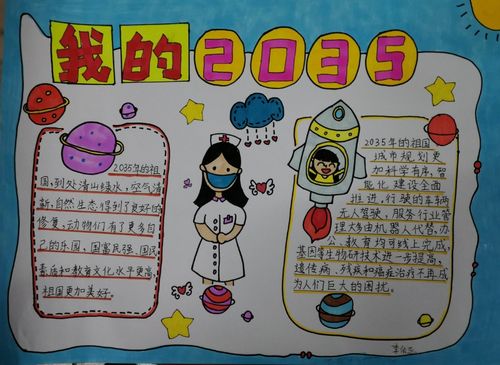 我的2035
2035年的祖
国,到处清山绿水,空气清
新,自然生态得到了良好的
修复,动物们有了更多自
己的乐园,国富民强,国民
素质和教育文化水平更高
祖国更加美好。
2035年的祖国
城市规划更
加科学有序,智
能化建设全面
推进,行驶的车辆
无人驾驶,服务行业管
理大多由机器人代替,办
公、教育均可线上完成,
基因等生物研技术进一步提高,
遗传病、残疾和癌症治疗不再成
为人们巨大的困扰。